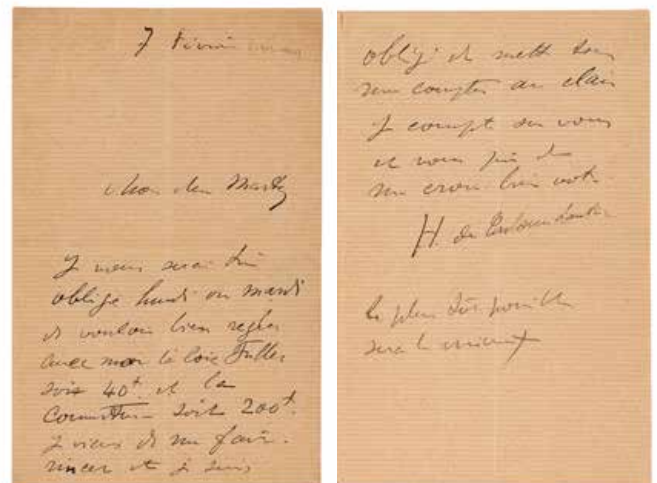 7 Février
Mon cher Marty
Je vous serai bien
obligé lundi ou mardi
de vouloir bien regler
avec moi la loie Fuller
soit 40f. et la
soit 200f.
Je viens de me faire
rincer et je suis
obligé de mettre tous
mes comptes au clair
Je compte sur vous
et vous prie de
me croire bien votre
H. de Toulouse Lautrec
le plus tôt possible
sera le mieux